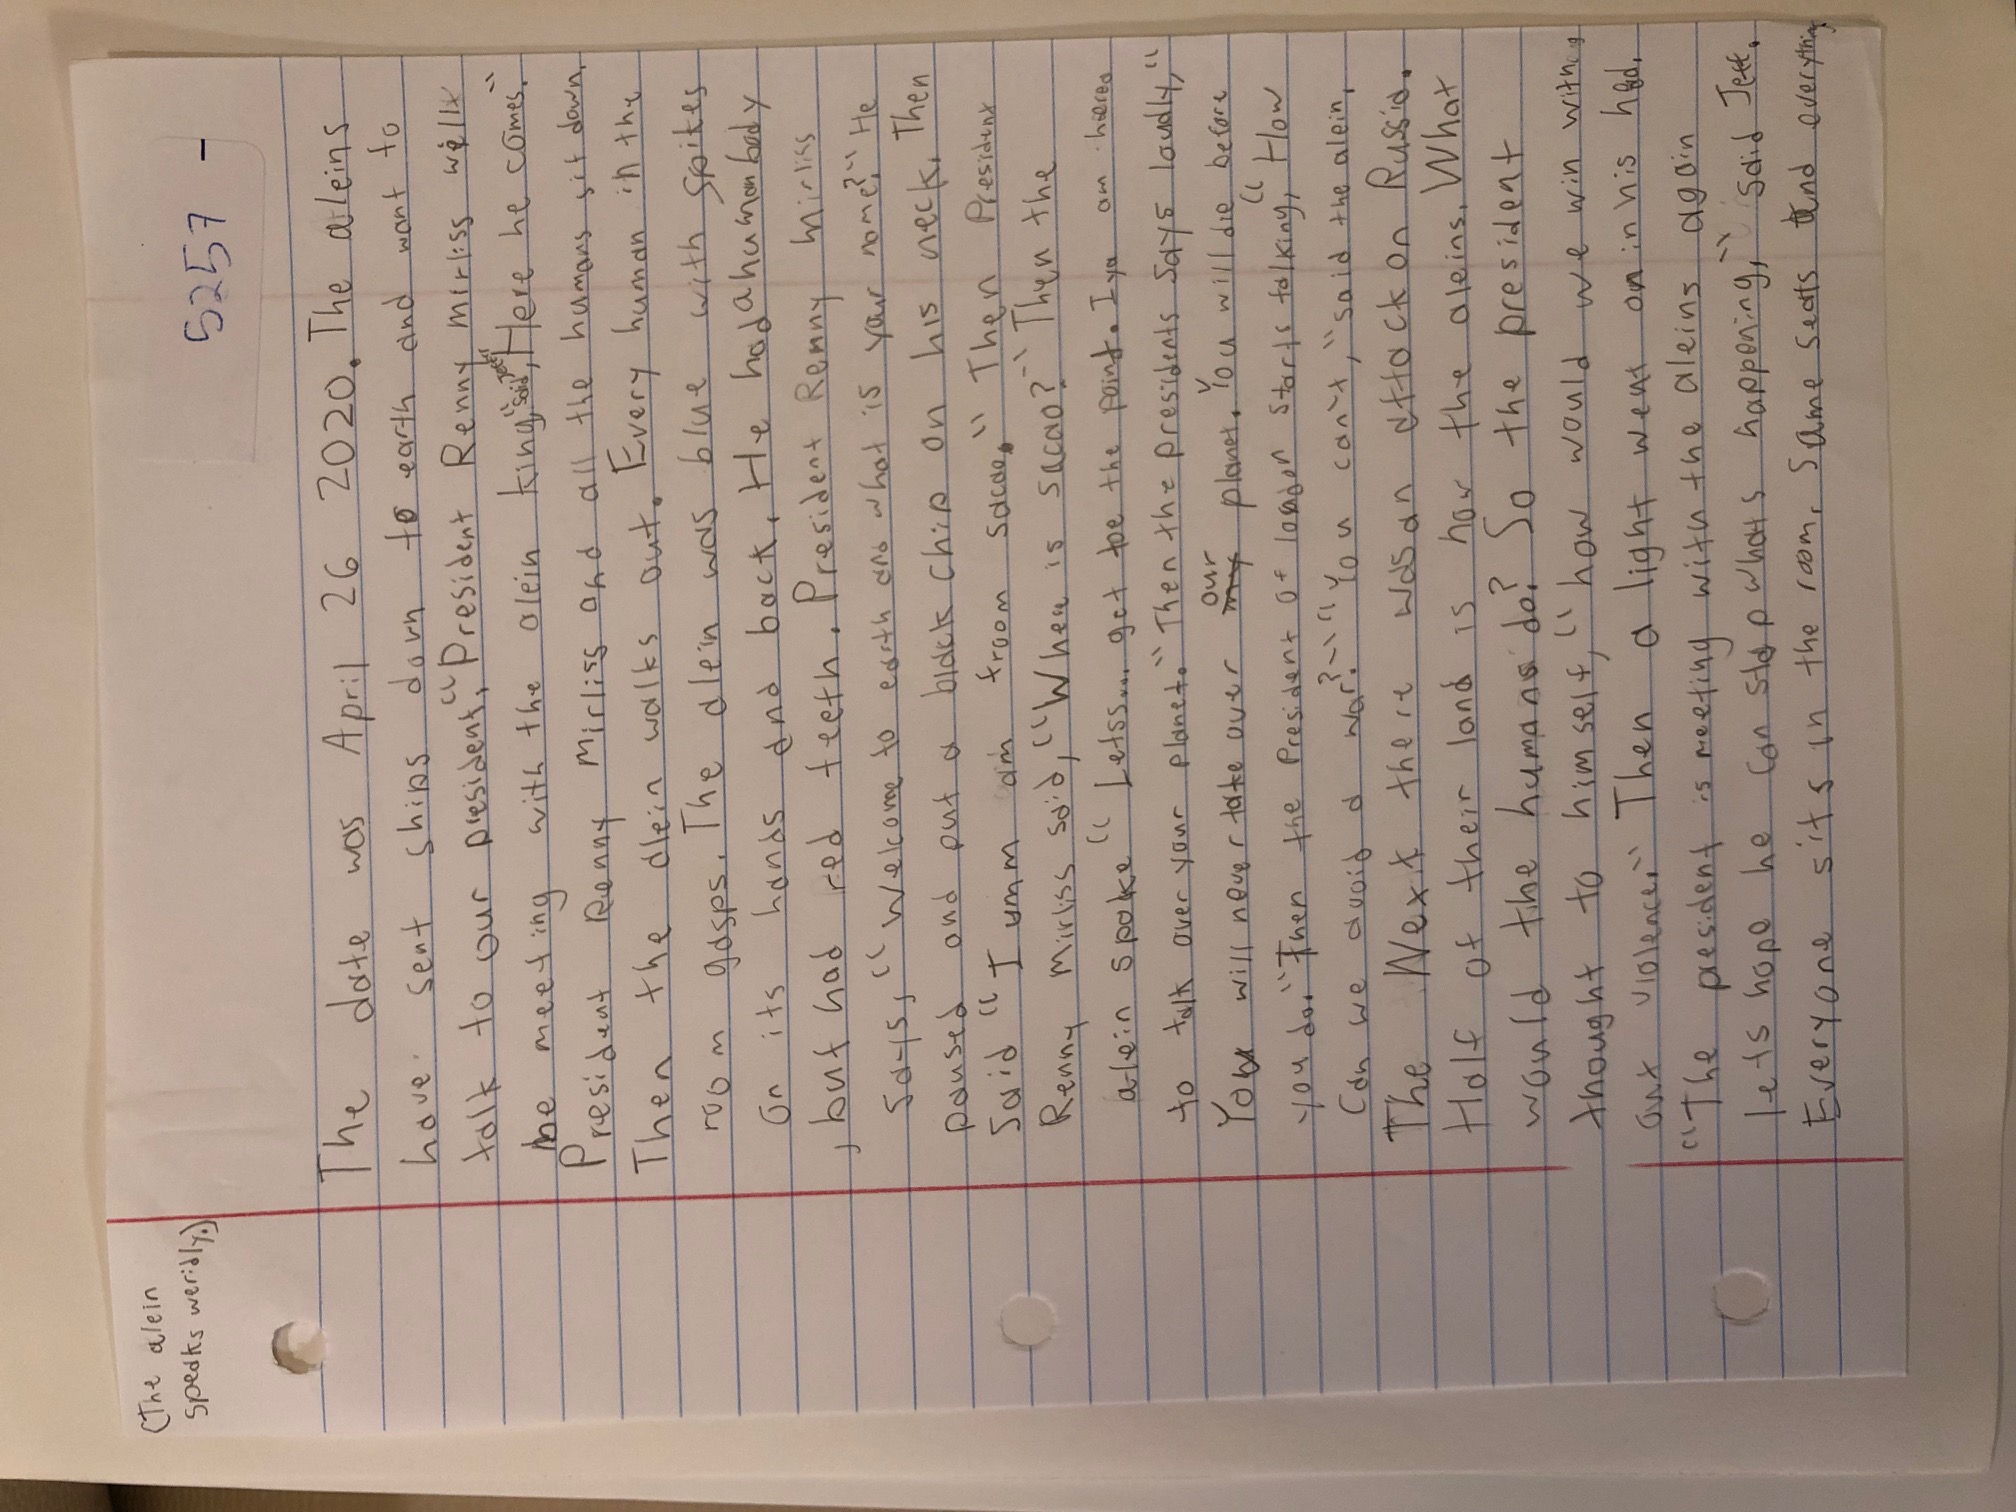 (The alein
speaks weridly.)
5257 -
The date was April 26 2020. The aleins
have sent ships down to earth and want to
talk to our president, "President Renny Mirliss will
be meeting with the alein king," said Jeff, "Here he comes."
President Renny Mirliss and all the humans sit down.
Then the alein walks out. Every human in the
room gasps. The alein was blue with spikes
on its hands and back. He had a human body
, but had red teeth. President Renny Mirliss
says, "Welcome to earth and what is your name?" He
paused and put a black chip on his neck. Then
said "I umm am froom sacao." Then President
Renny Mirliss said, "Where is sacao?" Then the
alein spoke "Letss... get toe the point. I ya am heerea
to talk over your planet." Then the presidents says loudly, "
You will never take over our planet. You will die before
you do." Then the President of london starts talking, "How
can we avoid a war?" "You can't," said the alein,
The Next there was an attack on Russia.
Half of their land is now the aleins. What
would the humans do? So the president
thought to himself, "how would we win with
out violence." Then a light went on in his head.
"The president is meeting with the aleins again
lets hope he can stop whats happening," said Jeff.
Everyone sits in the room, same seats and everything